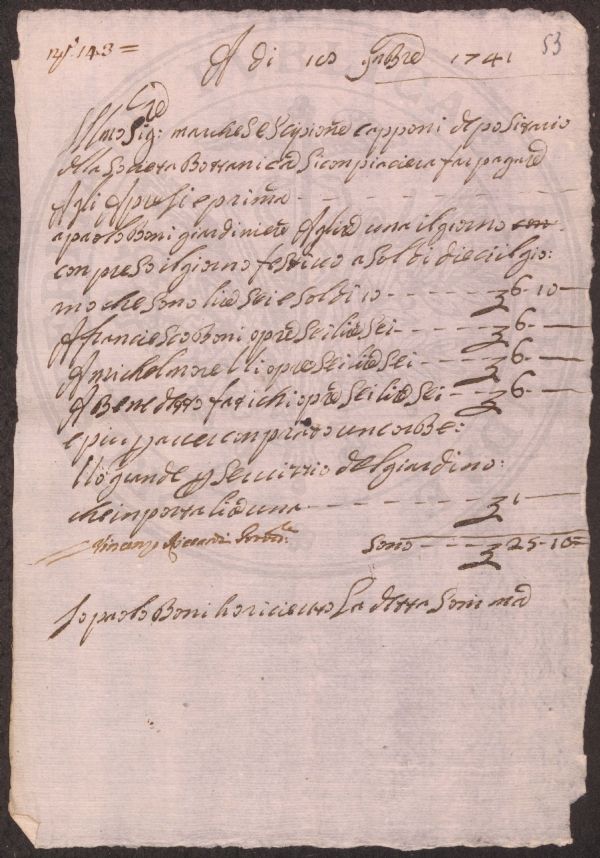 143 =
A di 10 9bre 1741
53
Illmo Sig: marchese Scipione capponi depositario
della Società Bottanica Si conpiacierà far pagare
Agli Apresi e prima
a paolo Boni giardiniere A lire una il giorno
conpreso il giorno festivo a soldi dieci il gio:
rno che sono lire sei e soldi 10 - - - - 6-10-
A franciesco Boni opre Sei lire Sei - - - 6-
A michel morelli opre Sei lire Sei - - - 6-
A Benedetto fatichi opre Sei lire Sei - - 6-
e più p aver conprato un corbe:
llo grande p Servizio del giardino:
che inporta lire una - - - - - - 1-
Vincenzo
Sono - - - 25-10=
Io paolo Boni ho riceuto La detta Somma